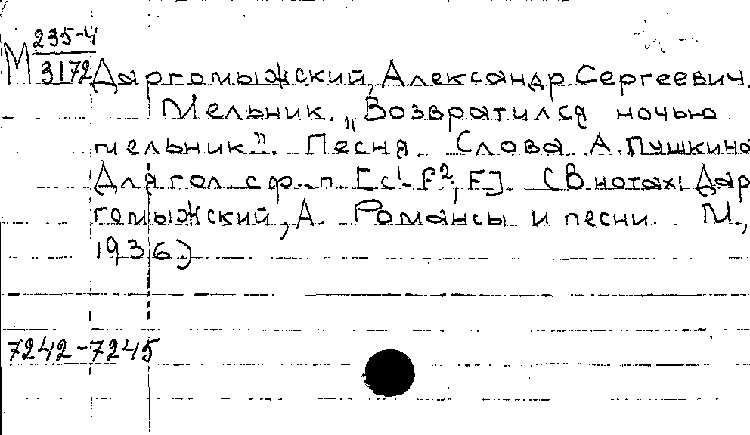 М 235-4
3172 Даргомыжский, Александр Сергеевич.
Мельник. „Возвратился ночью
мельник". Песня. Слова А. Пушкина
Для гол. с ф.-п. [c¹-f², F]. (В нотах: Дар
гомыжский, А. Романсы и песни. М.,
1936)
7242-7245